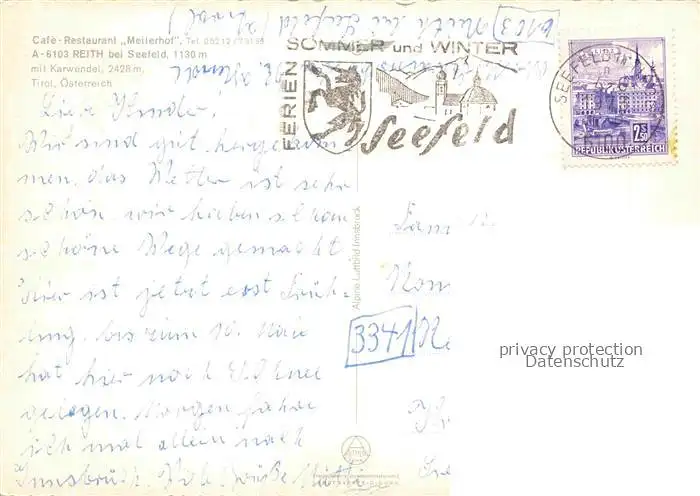 Café-Restaurant „Meilerhof", Tel. 05212
A-6103 REITH bei Seefeld, 1130 m
mit Karwendel, 2428 m,
Tirol, Österreich
6103 Reith bei Seefeld
Tirol
FERIEN
SOMMER und WINTER
Seefeld
SEEFELD
LINZ
2.50
REPUBLIK ÖSTERREICH
Liebe Kinder,
Wir sind gut hergekom
men, das Wetter ist sehr
schön, wir haben schon
schöne Wege gemacht
hier ist jetzt erst Früh-
ling, bis zum 10. Mai
hat hier noch Schnee
gelegen. Morgen fahre
ich mal allein nach
Innsbruck. Viele Grüße Mutti
Alpine Luftbild Innsbruck
Fam
3341
privacy protection
Datenschutz